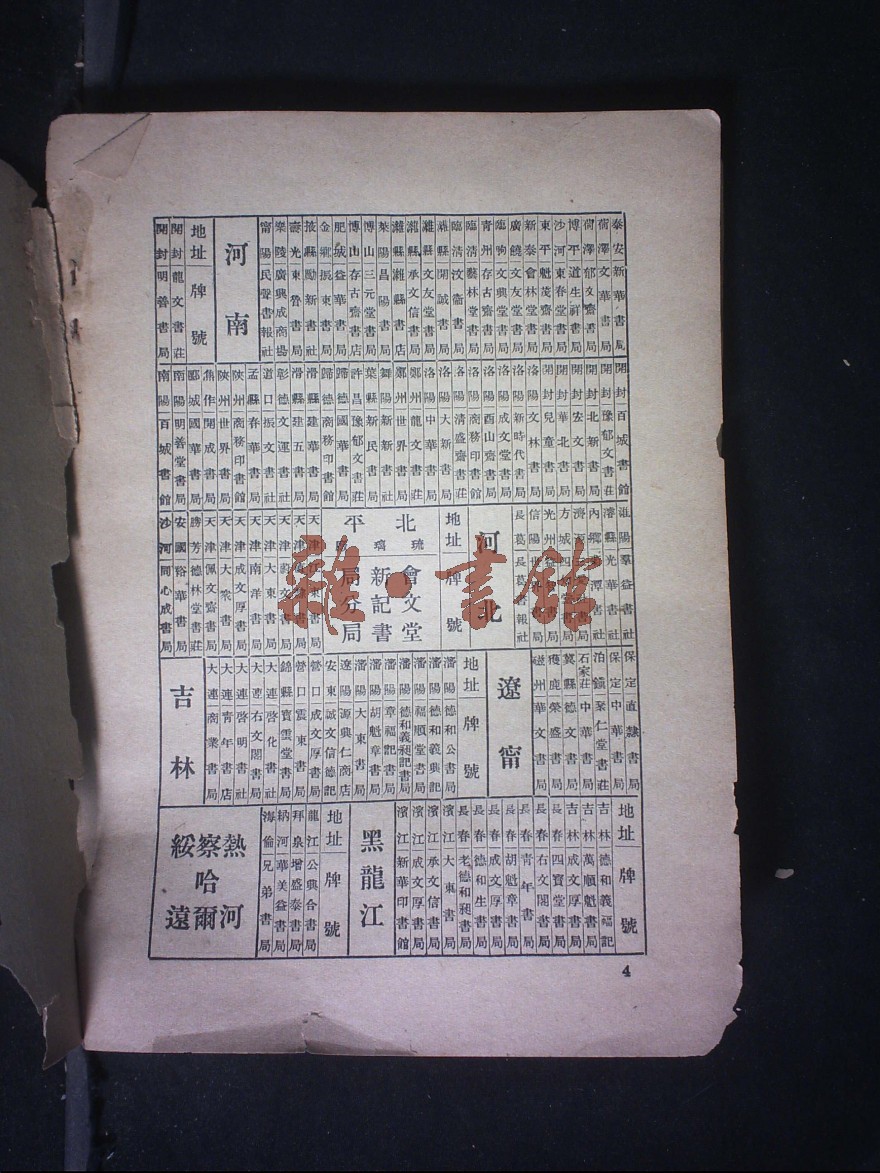 泰安新華書局
荷澤文華書局
荷澤郁文齋書局
博平道生祥書局
沙河東春堂書局
東平魁茂齋書局
新泰會林堂書局
廣饒文友堂書局
臨朐文興堂書局
青州存古齋書局
臨清藝林堂書局
臨清汶衞書局
濰縣開誠書局
濰縣文友堂書局
濰縣承文信書局
濰縣濰縣書店
萊陽昌陽書局
博山三元堂書局
博山存古齋書店
肥城益華書局
金鄉振東書局
掖縣勵新書社
壽光東魯書局
樂陵廣興成商號
甯陽民聲書報社
河南
地址 牌號
開封龍文書莊
開封明善書局
開封百城書館
開封豫郁文書莊
開封北新書局
開封安文書局
開封華北書局
開封兒童書局
洛陽文林書局
洛陽新時代書局
洛陽成文堂書局
洛陽酉山齋書局
洛陽商務印書館
洛陽清盛齋書莊
洛陽大新書局
洛陽中華書局
鄭州龍文書莊
鄭州世界書局
舞陽新新書社
葉縣新民書局
許昌豫郁文書莊
歸德國華書局
歸德商務印書館
滑縣建華書局
滑縣建五書局
彰德文運書社
道口振文書社
孟縣春華書局
陝州商務印書館
陝州世界書局
焦作開成書局
郾城國華書局
南陽明善堂書局
南陽百城書館
淮陽羣益書社
濬縣光華書社
光州
信陽
長葛長葛書報社
河北
地址 牌號
北平
琉璃廠
會文堂新記書局分局
天津大東書局
天津南洋書局
天津成文厚書局
天津大衆書局
天津佩文齋書局
勝芳德林堂書莊
安國裕華書局
沙河同心成書局
保定直隸書局
保定中華書局
泊鎮聚仁堂書莊
石家莊中華書局
冀縣德文書局
獲鹿榮盛書局
磁州華文書局
遼甯
地址 牌號
瀋陽德和公書局
瀋陽德和義興記
瀋陽福順堂書局
瀋陽德和義昶記書局
瀋陽章福記書局
瀋陽胡魁章書局
瀋陽大東書局
遼陽源興仁商店
安東誠文信德記
營口成文厚書局
營口震東書局
錦縣寶雲堂書局
大連啓化書社
大連右文閣書局
大連啓明書社
大連青年書店
大連商業書局
吉林
地址 牌號
吉林德和義福記
吉林萬順魁書局
吉林成文厚書局
長春四寶堂書局
長春右文閣書局
長春青年書局
長春胡魁章書局
長春成文厚書局
長春德和生書局
長春老德和昶書局
濱江大東書局
濱江承文信書局
濱江成文厚書局
濱江新華印書館
黑龍江
地址 牌號
龍江公興合書局
拜泉增盛泰書局
納河華美益書局
海倫兄弟書局
熱河
察哈爾
綏遠
4
雜·書館